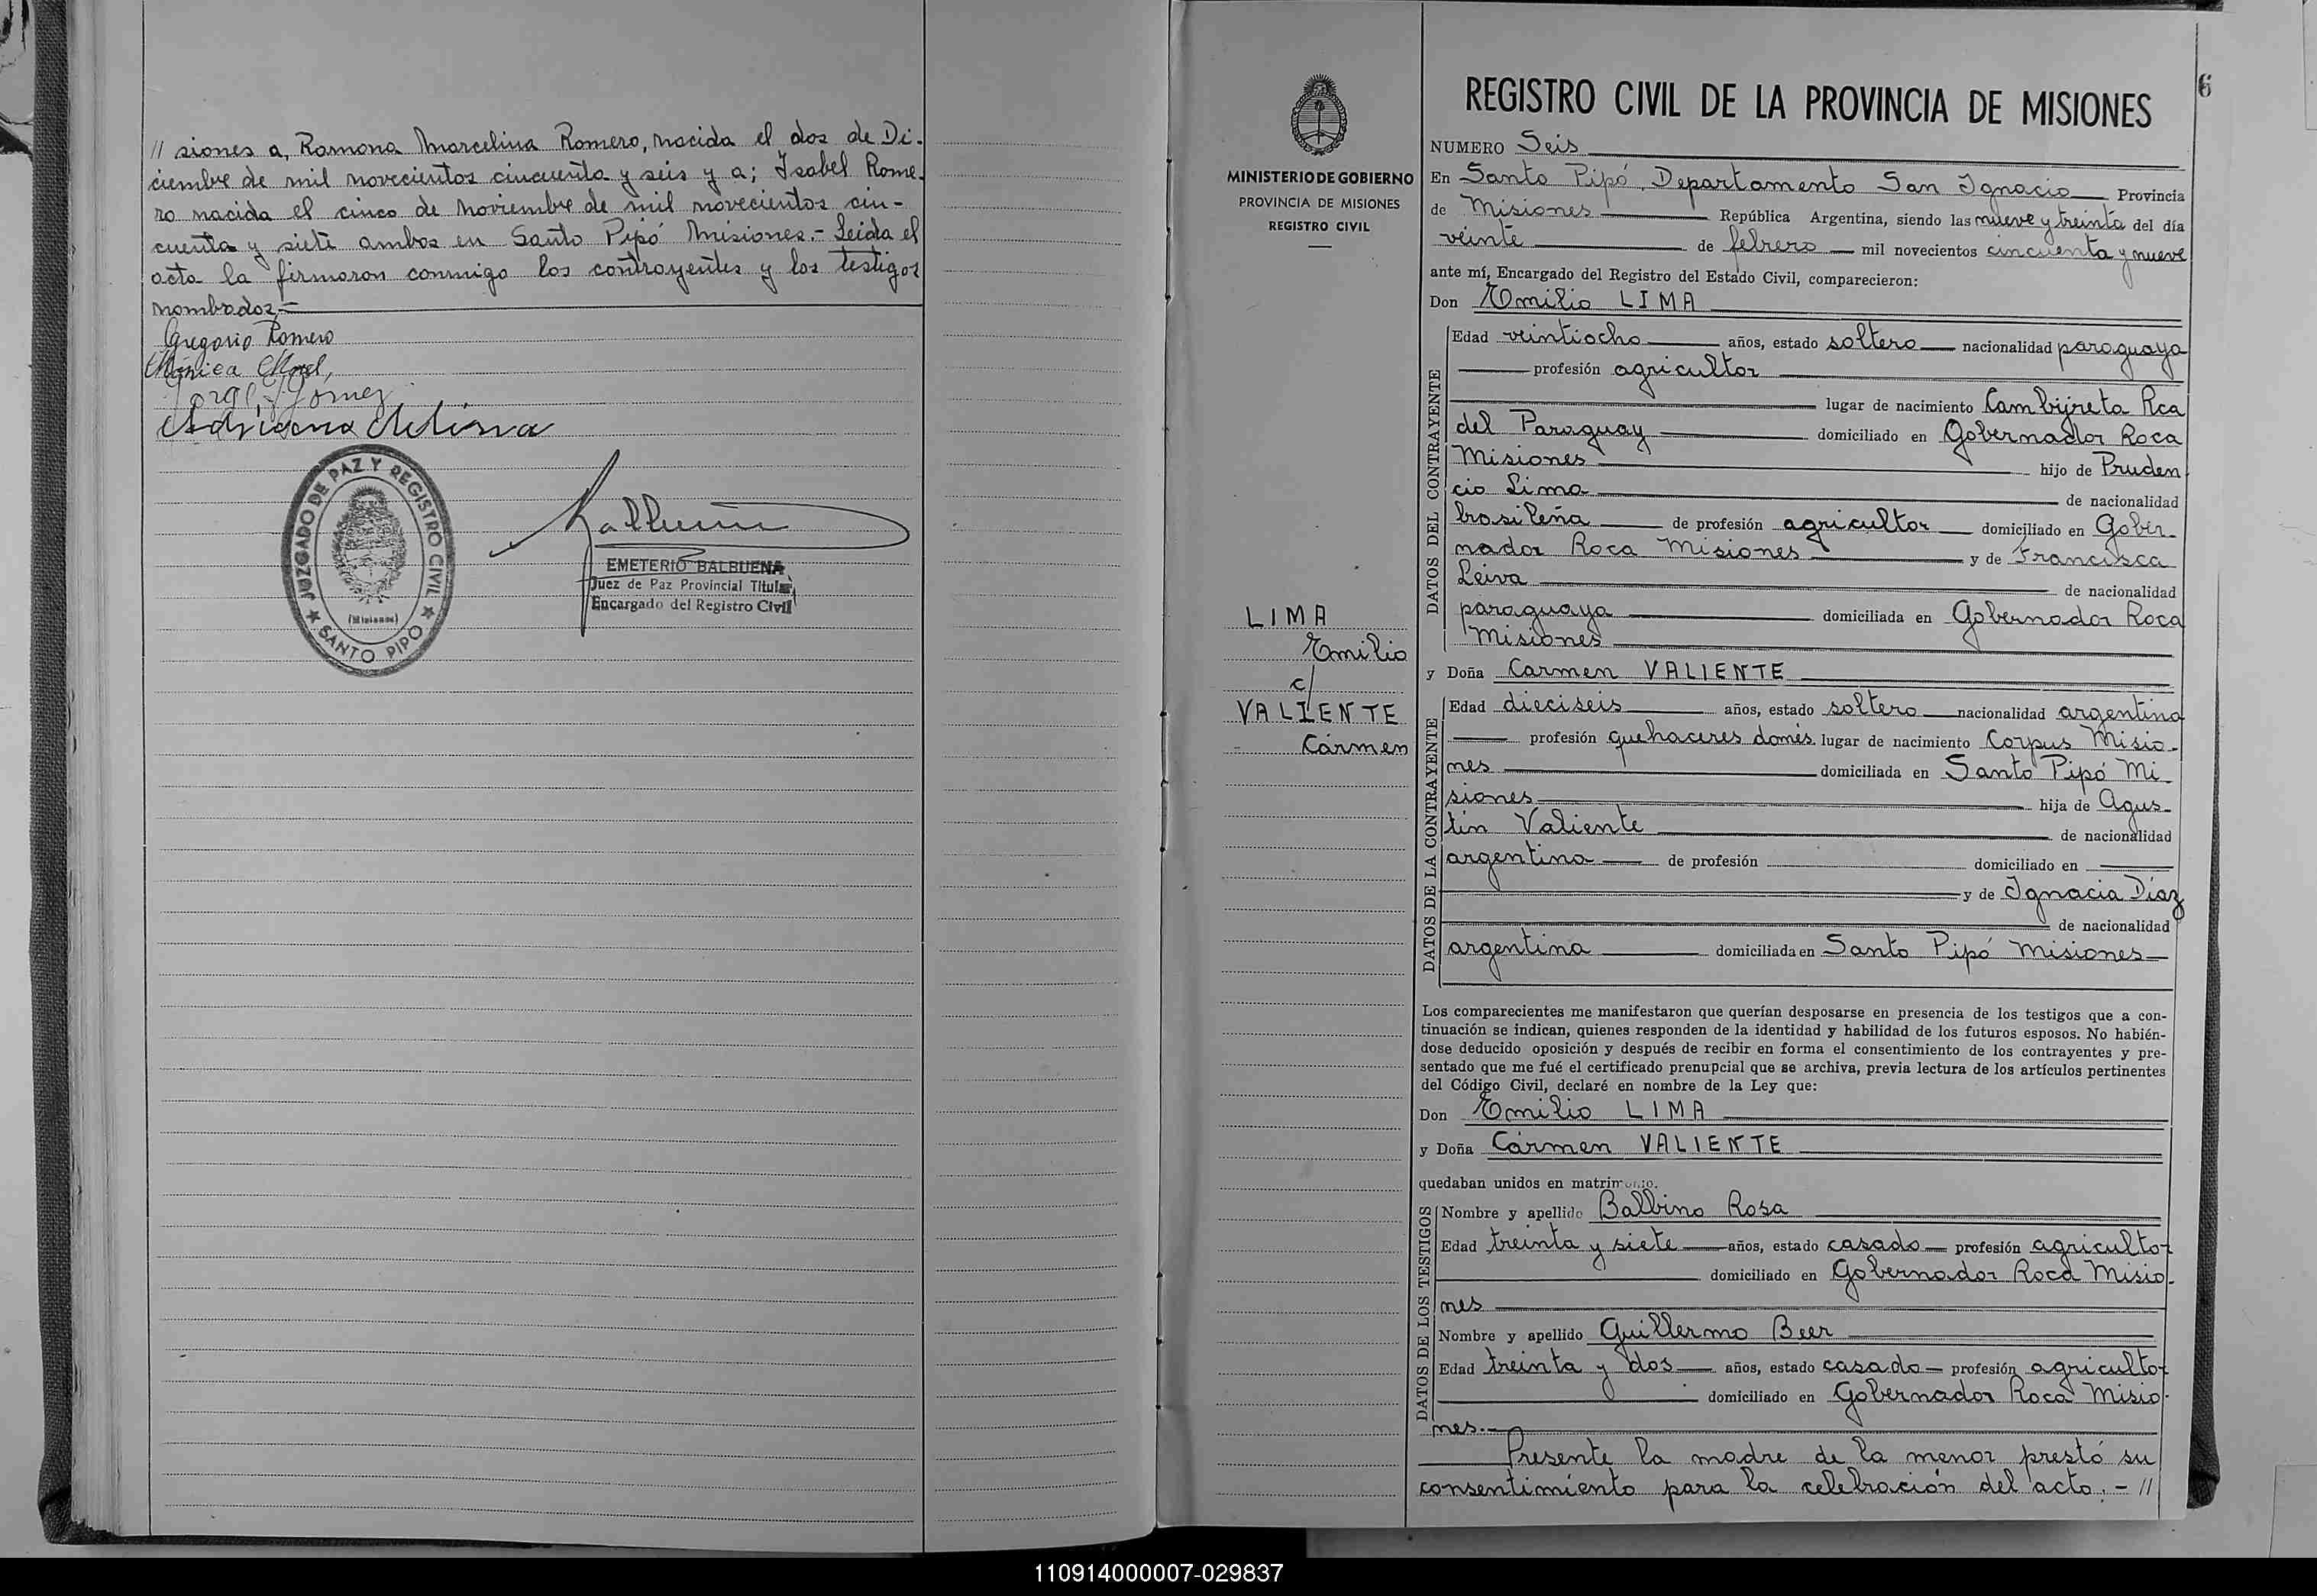 // siones a, Ramona Marcelina Romero, nacida el dos de Di-
ciembre de mil novecientos cincuenta y seis y a; Isabel Rome-
ro nacida el cinco de Noviembre de mil novecientos cin-
cuenta y siete ambos en Santo Pipó Misiones.- Leida el
acta la firmaron conmigo los contrayentes y los testigos
nombados.-
Gregorio Romero
Mónica
Jorge Gomez
JUZGADO DE PAZ Y REGISTRO CIVIL
(Misiones)
SANTO PIPO
EMETERIO BALBUENA
Juez de Paz Provincial Titular
Encargado del Registro Civil
6
MINISTERIO DE GOBIERNO
PROVINCIA DE MISIONES
REGISTRO CIVIL
LIMA
Emilio
c/
VALIENTE
Cármen
REGISTRO CIVIL DE LA PROVINCIA DE MISIONES
NUMERO Seis
En Santo Pipó, Departamento San Ignacio Provincia
de Misiones República Argentina, siendo las nueve y treinta del día
veinte de febrero mil novecientos cincuenta y nueve
ante mí, Encargado del Registro del Estado Civil, comparecieron:
Don Emilio LIMA
DATOS DEL CONTRAYENTE
Edad veintiocho años, estado soltero nacionalidad paraguaya
profesión agricultor
lugar de nacimiento Cambyreta Rca
del Paraguay domiciliado en Gobernador Roca
Misiones hijo de Pruden
cio Lima de nacionalidad
brasileña de profesión agricultor domiciliado en Gober-
nador Roca Misiones y de Francisca
Leiva de nacionalidad
paraguaya domiciliada en Gobernador Roca
Misiones
y Doña Carmen VALIENTE
DATOS DE LA CONTRAYENTE
Edad dieciseis años, estado soltera nacionalidad argentina
profesión quehaceres domés. lugar de nacimiento Corpus Misio-
nes domiciliada en Santo Pipó Mi-
siones hija de Agus-
tín Valiente de nacionalidad
argentina de profesión domiciliado en
y de Ignacia Díaz
de nacionalidad
argentina domiciliada en Santo Pipó Misiones
Los comparecientes me manifestaron que querían desposarse en presencia de los testigos que a con-
tinuación se indican, quienes responden de la identidad y habilidad de los futuros esposos. No habién-
dose deducido oposición y después de recibir en forma el consentimiento de los contrayentes y pre-
sentado que me fué el certificado prenupcial que se archiva, previa lectura de los artículos pertinentes
del Código Civil, declaré en nombre de la Ley que:
Don Emilio LIMA
y Doña Cármen VALIENTE
quedaban unidos en matrimonio.
DATOS DE LOS TESTIGOS
Nombre y apellido Balbino Rosa
Edad treinta y siete años, estado casado profesión agricultor
domiciliado en Gobernador Roca Misio-
nes
Nombre y apellido Guillermo Beer
Edad treinta y dos años, estado casado profesión agricultor
domiciliado en Gobernador Roca Misio-
nes.-
Presente la madre de la menor prestó su
consentimiento para la celebración del acto.- //
110914000007-029837